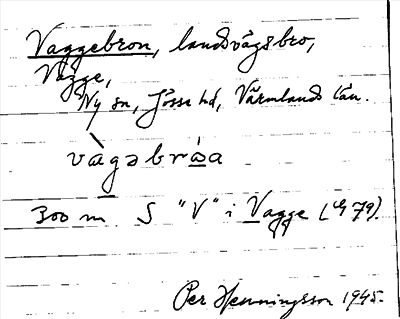 Vaggebron, landsvägsbro,
Vagge,
Ny sn, Jösse hd, Värmlands län.
vàgəbrω̂a
300 m S "V" i Vagge (G 79).
Per Henningsson 1945.